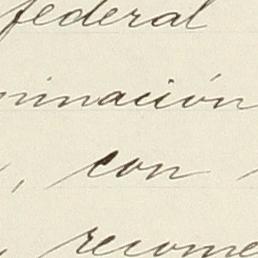 federal
minación
, con
recome